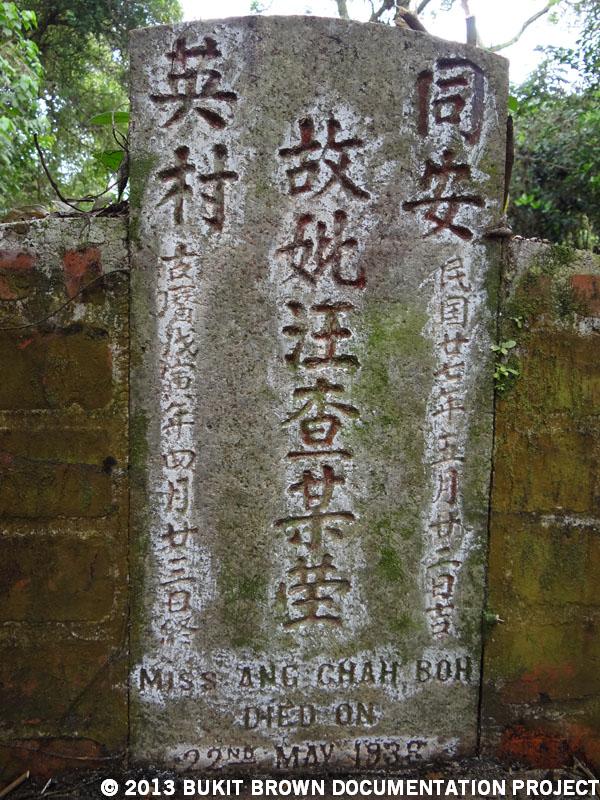 同安
民国廿七年五月廿二日吉
故妣汪查某茔
英村
古曆戊寅年四月廿三日終
MISS ANG CHAH BOH
DIED ON
22ND MAY 1938
© 2013 BUKIT BROWN DOCUMENTATION PROJECT